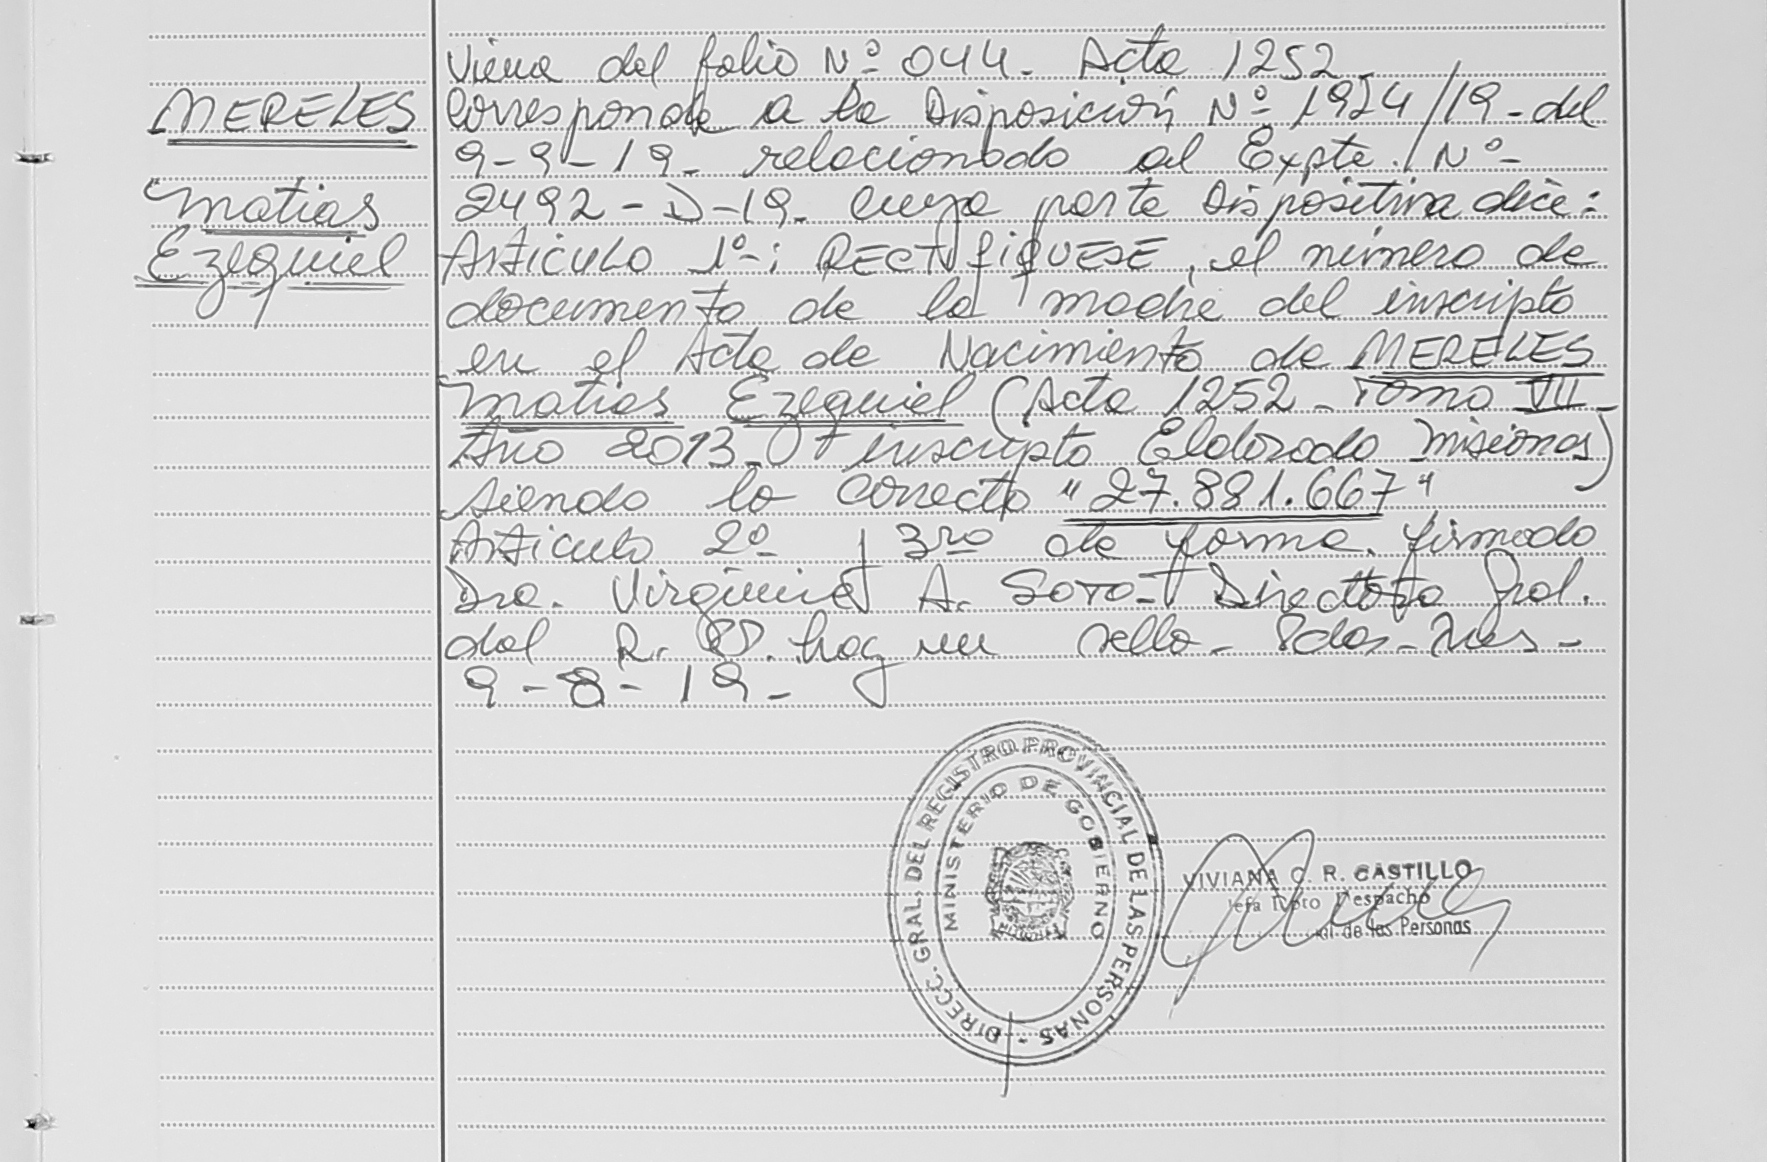 MERELES
Matias
Ezequiel
Viene del folio Nº 044. Acta 1252.
Corresponde a la Disposición Nº 1924/19-del
9-9-19. relacionado al Expte. Nº-
2492-D-19. cuya parte Dispositiva dice:
Articulo 1º-: RECTIFIQUESE, el número de
documento de la madre del inscripto
en el Acta de Nacimiento de MERELES
Matias Ezequiel (Acta 1252-Tomo VII-
Año 2013- inscripto Eldorado Misiones)
siendo lo correcto "27.881.667"
Articulo 2º y 3ro de forma. firmado
Dra. Virginia A. Soto- Directora Gral.
del R. P. hay un sello- Pdas-Mes-
9-8-19-
DIRECC. GRAL. DEL REGISTRO PROVINCIAL DE LAS PERSONAS -
MINISTERIO DE GOBIERNO
VIVIANA C. R. CASTILLO
Jefa Dpto Despacho
de las Personas